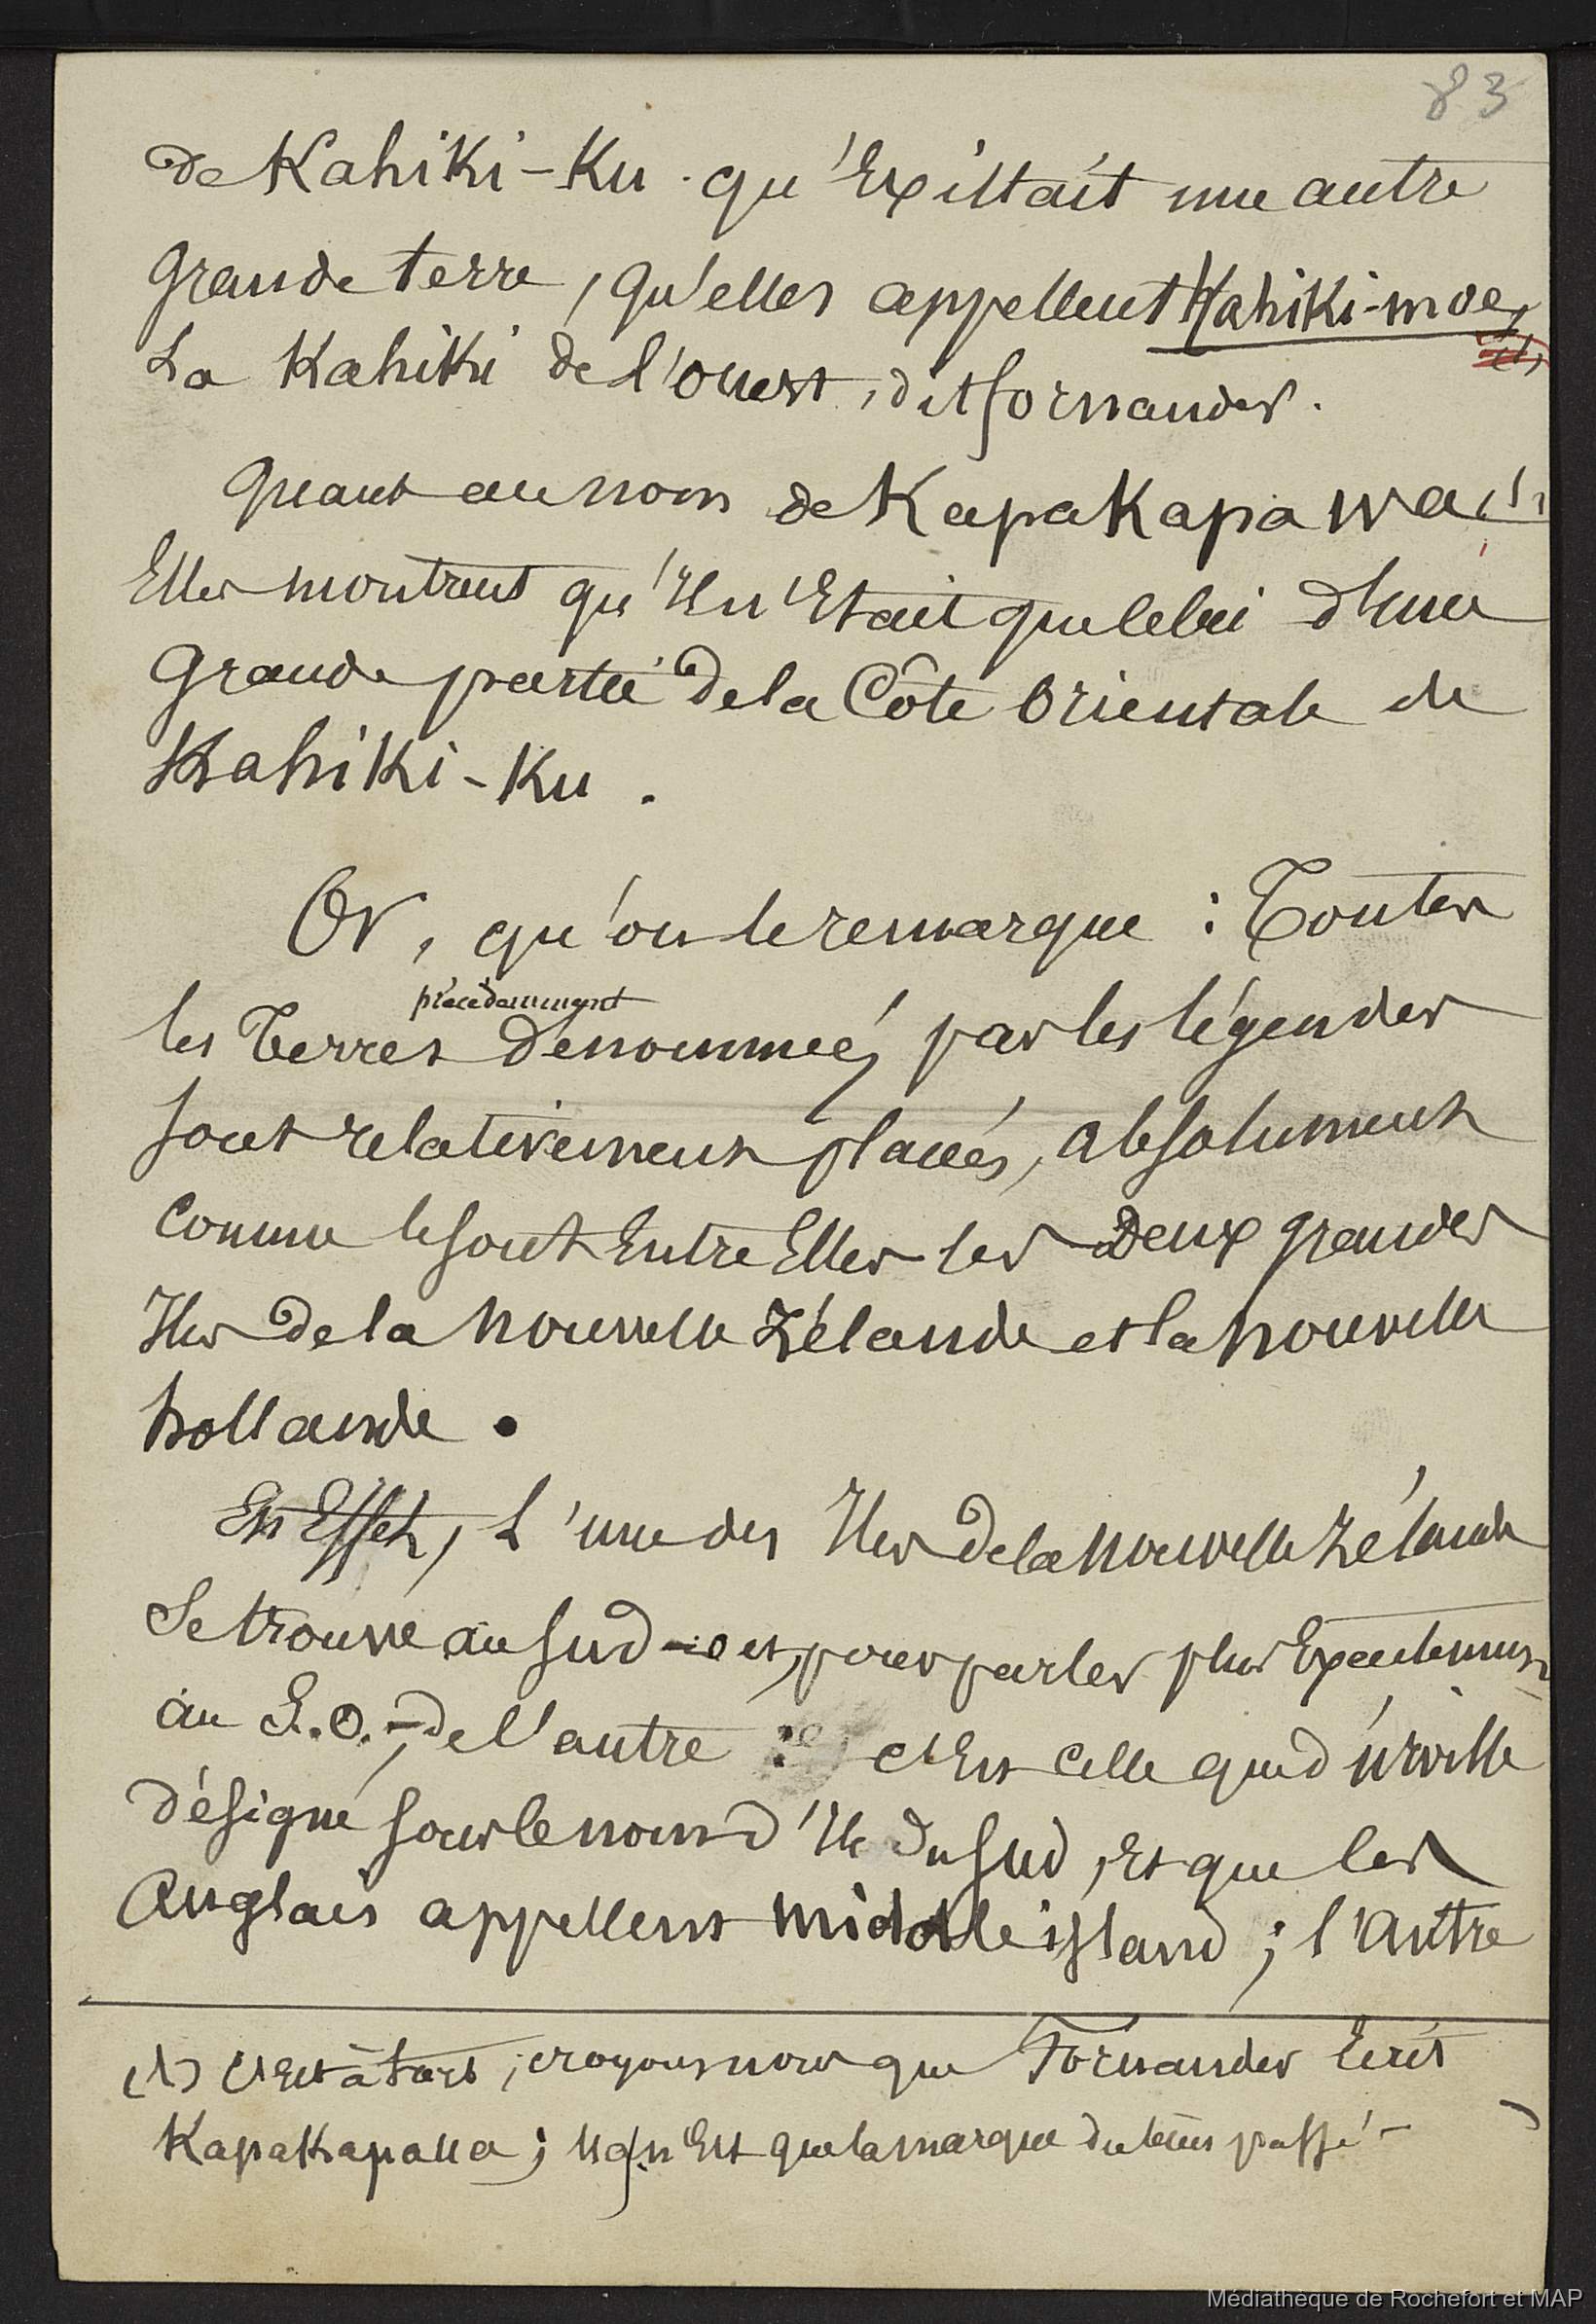 83
de Kahiki-Ku. qu'Existait une autre
grande terre, qu'elles appellent Kahiki-moe,
La Kahiki de l'ouest, dit fornander.
Quant au nom de KapaKapawa, (1)
Elles montrent qu'Il n'Etait que celui d'une
grande partie de la Côte Orientale de
Kahiki-Ku.
Or, qu'on le remarque : Toutes
précédemment
les Terres dénommées, par les légendes
sont relativement placées, absolument
comme le sont Entre Elles les Deux grandes
Iles de la Nouvelle Zélande et la nouvelle
hollande.
En Effet, L'une des Iles de la Nouvelle Zélande
se trouve au sud - et, pour parler plus Exactement
au S.O. - de l'autre : c'Est celle que d'urville
désigne sous le nom d'Ile du sud, Et que les
Anglais appellent middle island ; l'autre
(1) C'Est à tort, croyons nous que Fornander Ecrit
KapaKapaua ; n'Est que la marque du tems passé -
Médiathèque de Rochefort et MAP